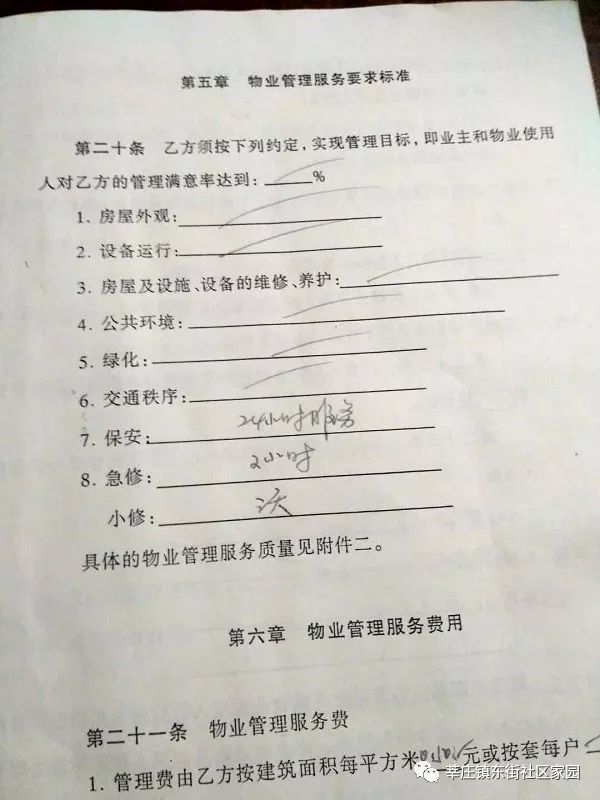 第五章 物业管理服务要求标准
第二十条 乙方须按下列约定，实现管理目标，即业主和物业使用
人对乙方的管理满意率达到：____%
1. 房屋外观：
2. 设备运行：
3. 房屋及设施、设备的维修、养护：
4. 公共环境：
5. 绿化：
6. 交通秩序：
7. 保安：24小时服务
8. 急修：2小时
小修：天
具体的物业管理服务质量见附件二。
第六章 物业管理服务费用
第二十一条 物业管理服务费
1. 管理费由乙方按建筑面积每平方米 元或按套每户
莘庄镇东街社区家园